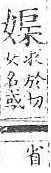 求於切
女名或
省